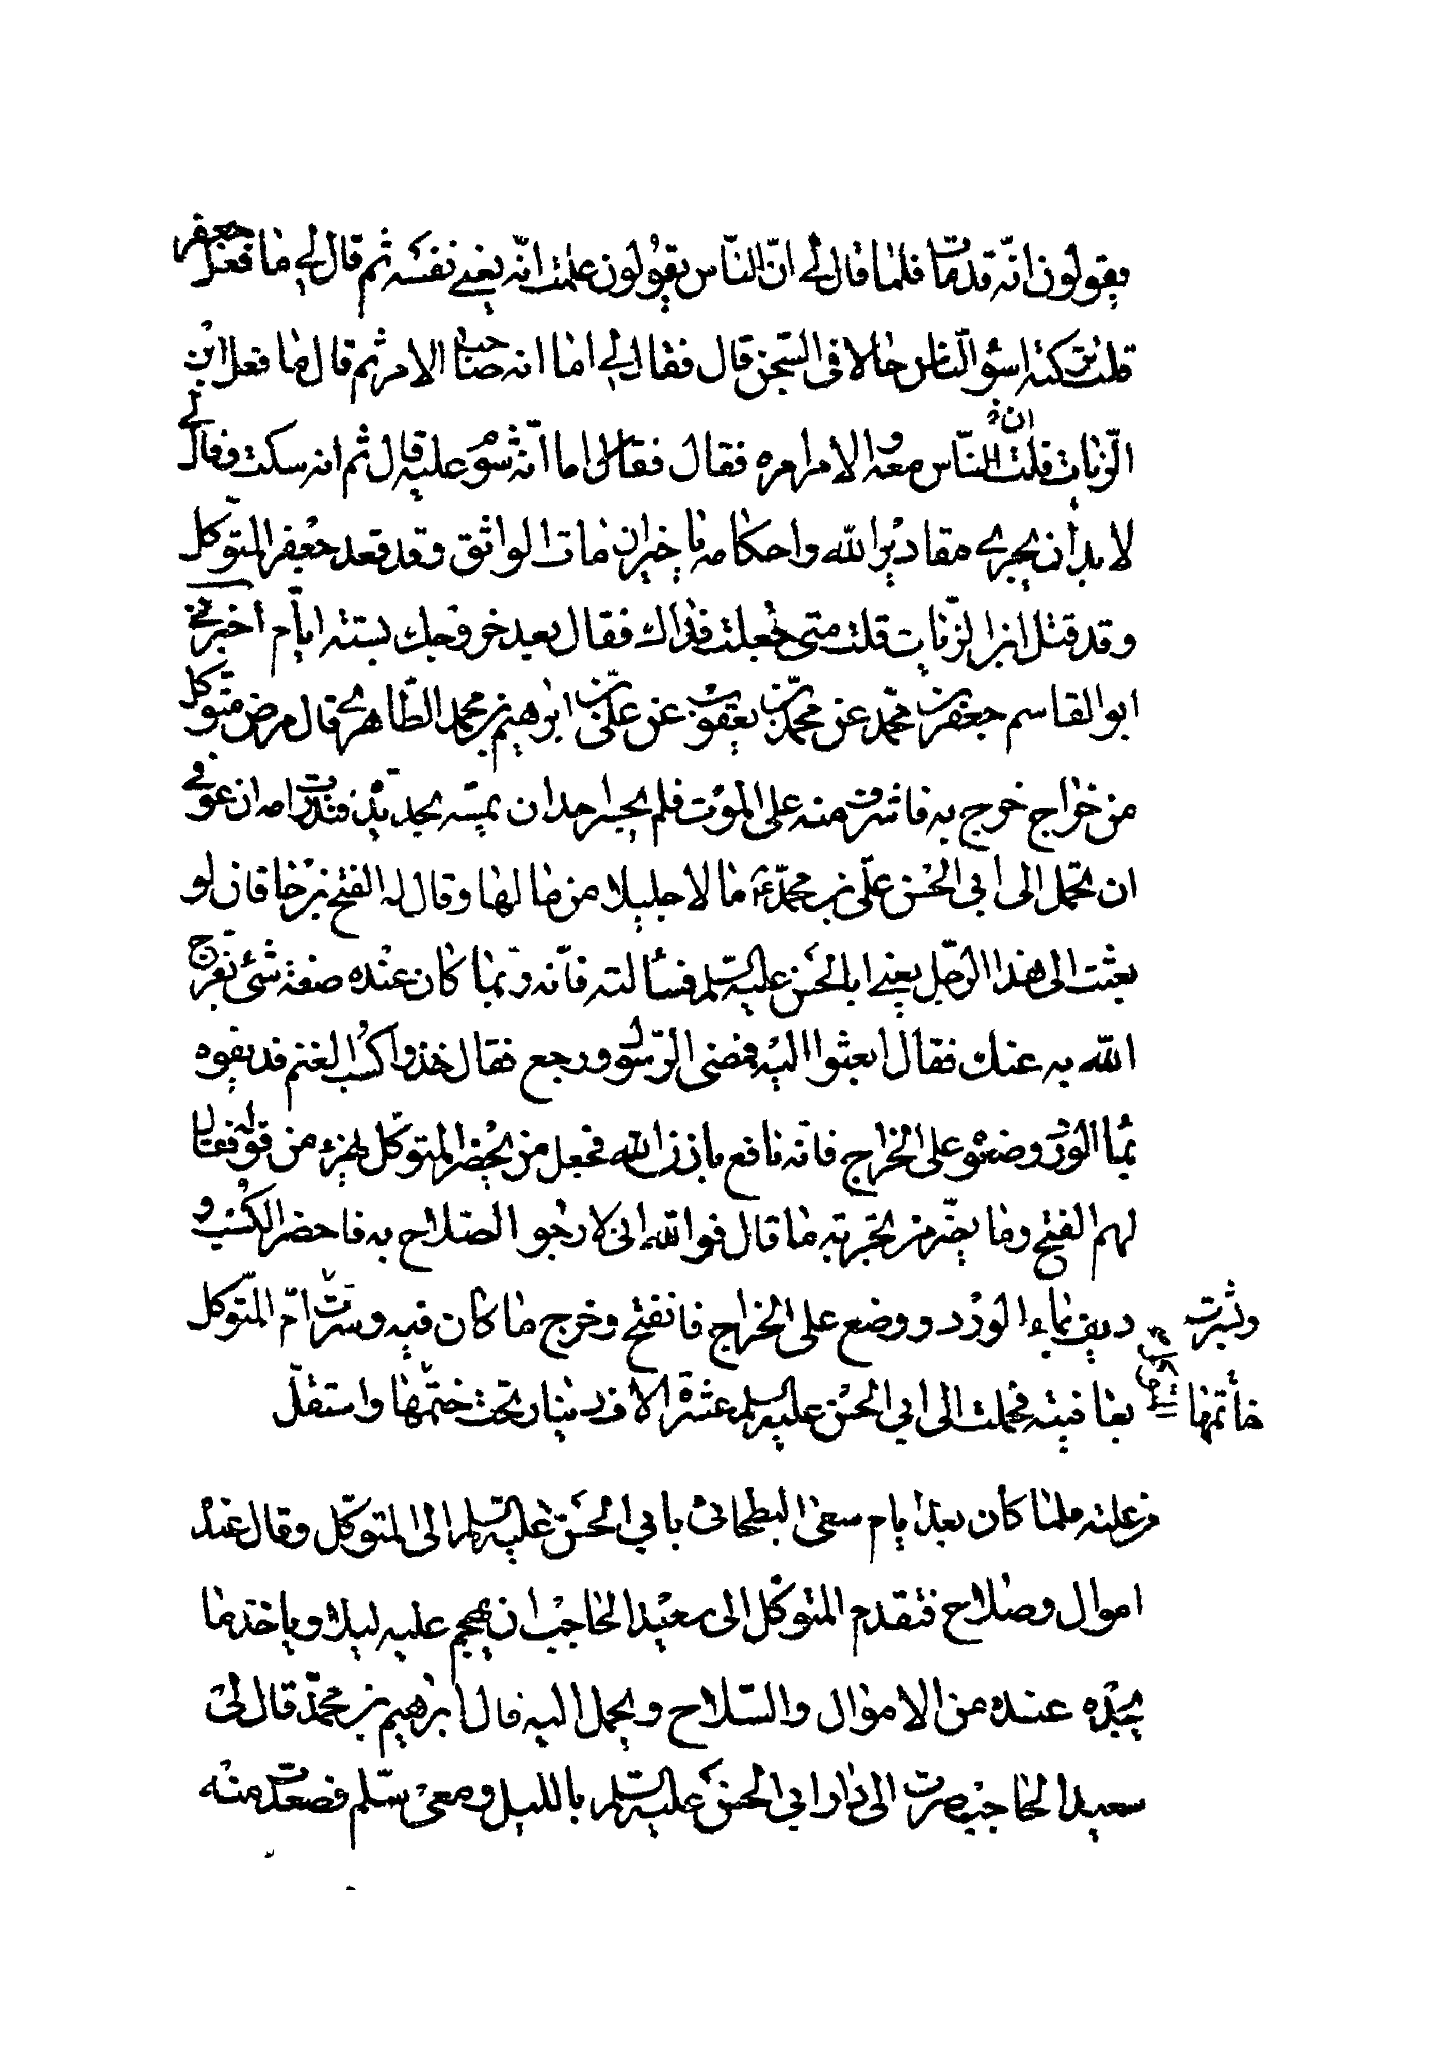 يقولون انّه قد مات فلمّا قال لي انّ النّاس يقولون علمت انّه يعني نفسه ثم قال لي ما فعل جعفر
قلت تركته اسؤ النّاس حالا في السّجن قال فقال لي اما انه صاحب الامر ثم قال ما فعل ابن
الزّيات قلت ان النّاس معه والامر امره فقال فقال لي اما انّه شوم عليه قال ثم انه سكت وقال لي
لا بد أن يجري مقادير الله واحكامه يا خيران مات الواثق وقد قعد جعفر المتوكّل
وقد قتل ابن الزّيات قلت متى جعلت فداك فقال بعد خروجك بستة ايّام أخبرني
ابو القاسم جعفر بن محمّد عن محمّد بن يعقوب عن عليّ بن ابرهيم بن محمد الطّاهري قال مرض متوكّل
من خراج خرج به فاشرف منه على الموت فلم يجسر احد ان يمسّه بحديد فنذرت امه ان عوفي
ان تحمل الى ابي الحسن علّي بن محمّد ع ما لا جليلا من مالها وقال له الفتح بن خاقان لو
بعثت الى هذا الرّجل يعني ابا لحسن عليه السّلم فسأ لته فانّه ربّما كان عنده صفة شئ يفرج
الله به عنك فقال ابعثوا اليه فمضى الرّسول ورجع فقال خذوا كسب الغنم فديفوه
بماء الورد وضعوه على الخراج فانّه نافع باذن الله فجعل من يحضر المتوكّل يهزء من قوله فقال
لهم الفتح وما يضّر من تجربته ما قال فوالله انى لارجو الصّلاح به فاحضر الكسب و
ديف بماء الورد ووضع على الخراج فانفتح وخرج ما كان فيه وسرّت امّ المتوكّل
وبشرت
بعافيته فحملت الى ابي الحسن عليه السلم عشرة الاف دينار تحت ختمها واستقلّ
خاتمها
من علته فلمّا كان بعد ايام سعى البطحائي بابي الحسن عليه السّلم الى المتوكّل وقال عنده
اموال وصلاح فتقدم المتوكّل الى سعيد الحاجب ان يهجم عليه ليلا وياخذ ما
يجده عنده من الاموال والسّلاح ويحمل اليه قال ابرهيم بن محمّد قال لي
سعيد الحاجب صرت الى دار ابي الحسن عليه السّلم بالليل ومعي سلّم فصعدت منه